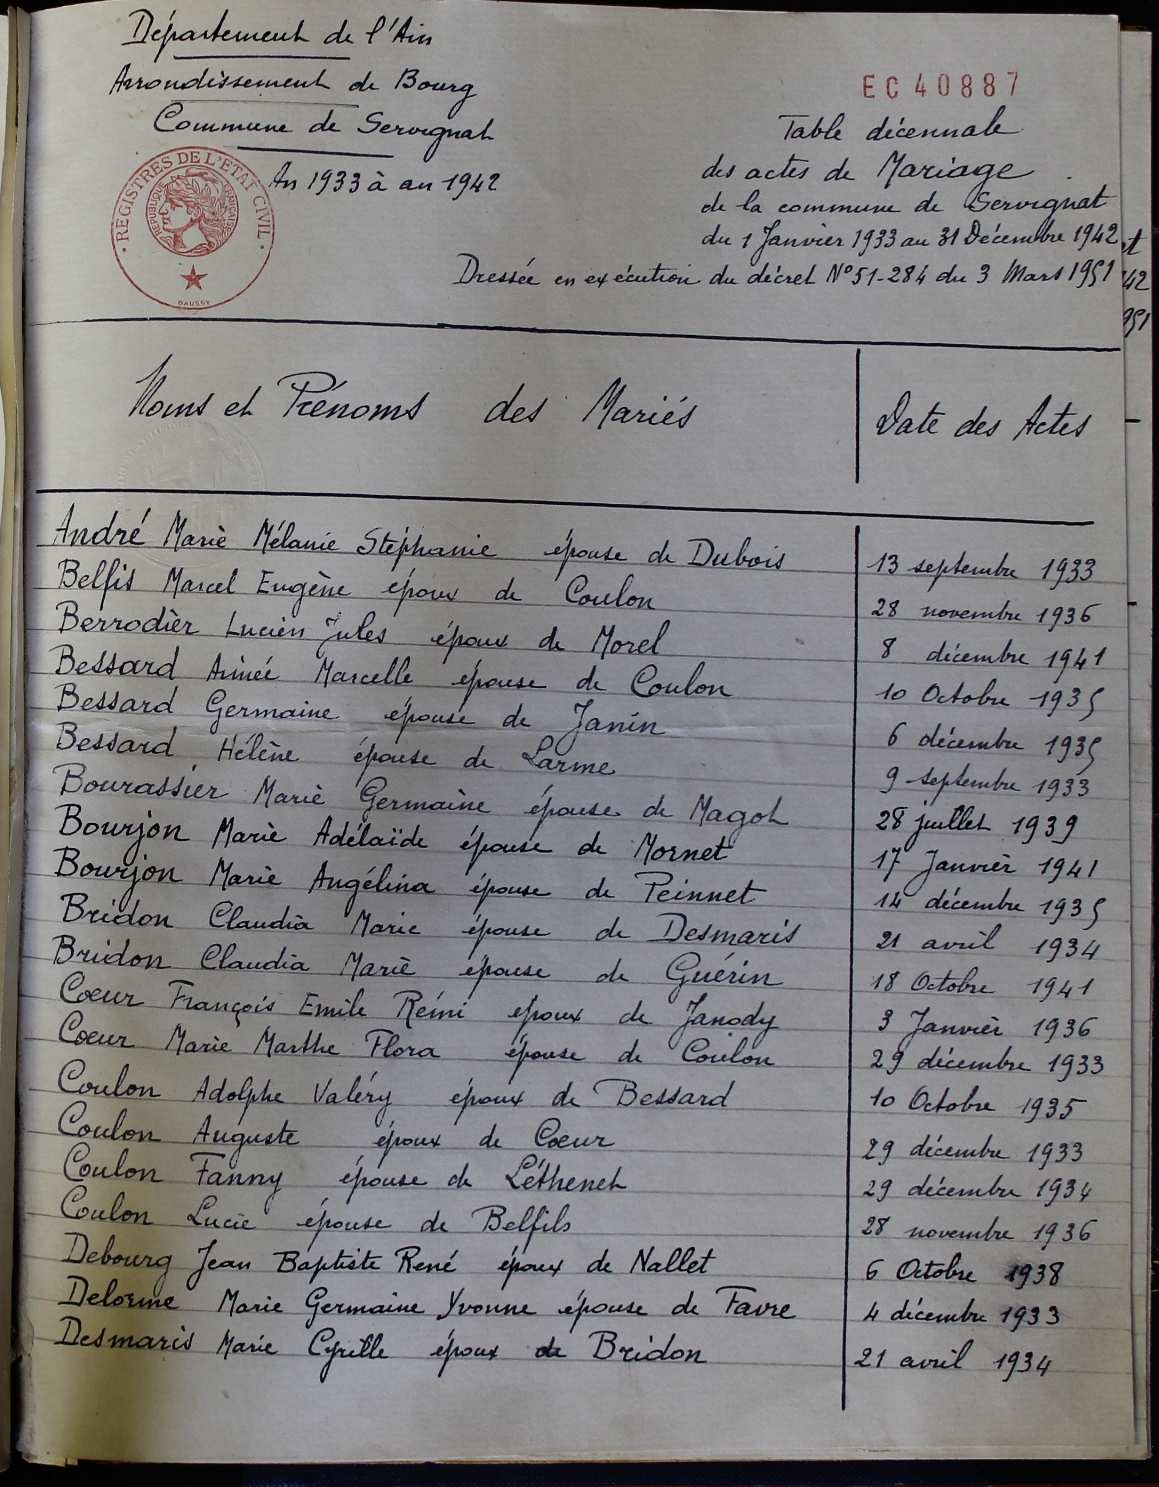 Département de l'Ain
Arrondissement de Bourg
Commune de Servignat
An 1933 à an 1942
REGISTRES DE L'ETAT CIVIL
REPUBLIQUE FRANÇAISE
DAUSSY
EC 40887
Table décennale
des actes de Mariage
de la commune de Servignat
du 1 Janvier 1933 au 31 Décembre 1942
Dressée en exécution du décret N° 51-284 du 3 Mars 1951
t
42
951
Noms et Prénoms des Mariés Date des Actes
André Marie Mélanie Stéphanie épouse de Dubois 13 septembre 1933
Belfis Marcel Eugène époux de Coulon 28 novembre 1936
Berrodier Lucien Jules époux de Morel 8 décembre 1941
Bessard Aimée Marcelle épouse de Coulon 10 Octobre 1935
Bessard Germaine épouse de Janin 6 décembre 1935
Bessard Hélène épouse de Larme 9 septembre 1933
Bourassier Marie Germaine épouse de Magot 28 juillet 1939
Bourjon Marie Adélaïde épouse de Mornet 17 Janvier 1941
Bourjon Marie Angélina épouse de Peinnet 14 décembre 1935
Bridon Claudia Marie épouse de Desmaris 21 avril 1934
Bridon Claudia Marie épouse de Guérin 18 Octobre 1941
Cœur François Emile Rémi époux de Janody 3 Janvier 1936
Cœur Marie Marthe Flora épouse de Coulon 29 décembre 1933
Coulon Adolphe Valéry époux de Bessard 10 Octobre 1935
Coulon Auguste époux de Cœur 29 décembre 1933
Coulon Fanny épouse de Léthenet 29 décembre 1934
Coulon Lucie épouse de Belfils 28 novembre 1936
Debourg Jean Baptiste René époux de Nallet 6 Octobre 1938
Delorme Marie Germaine Yvonne épouse de Favre 4 décembre 1933
Desmaris Marie Cyrille époux de Bridon 21 avril 1934